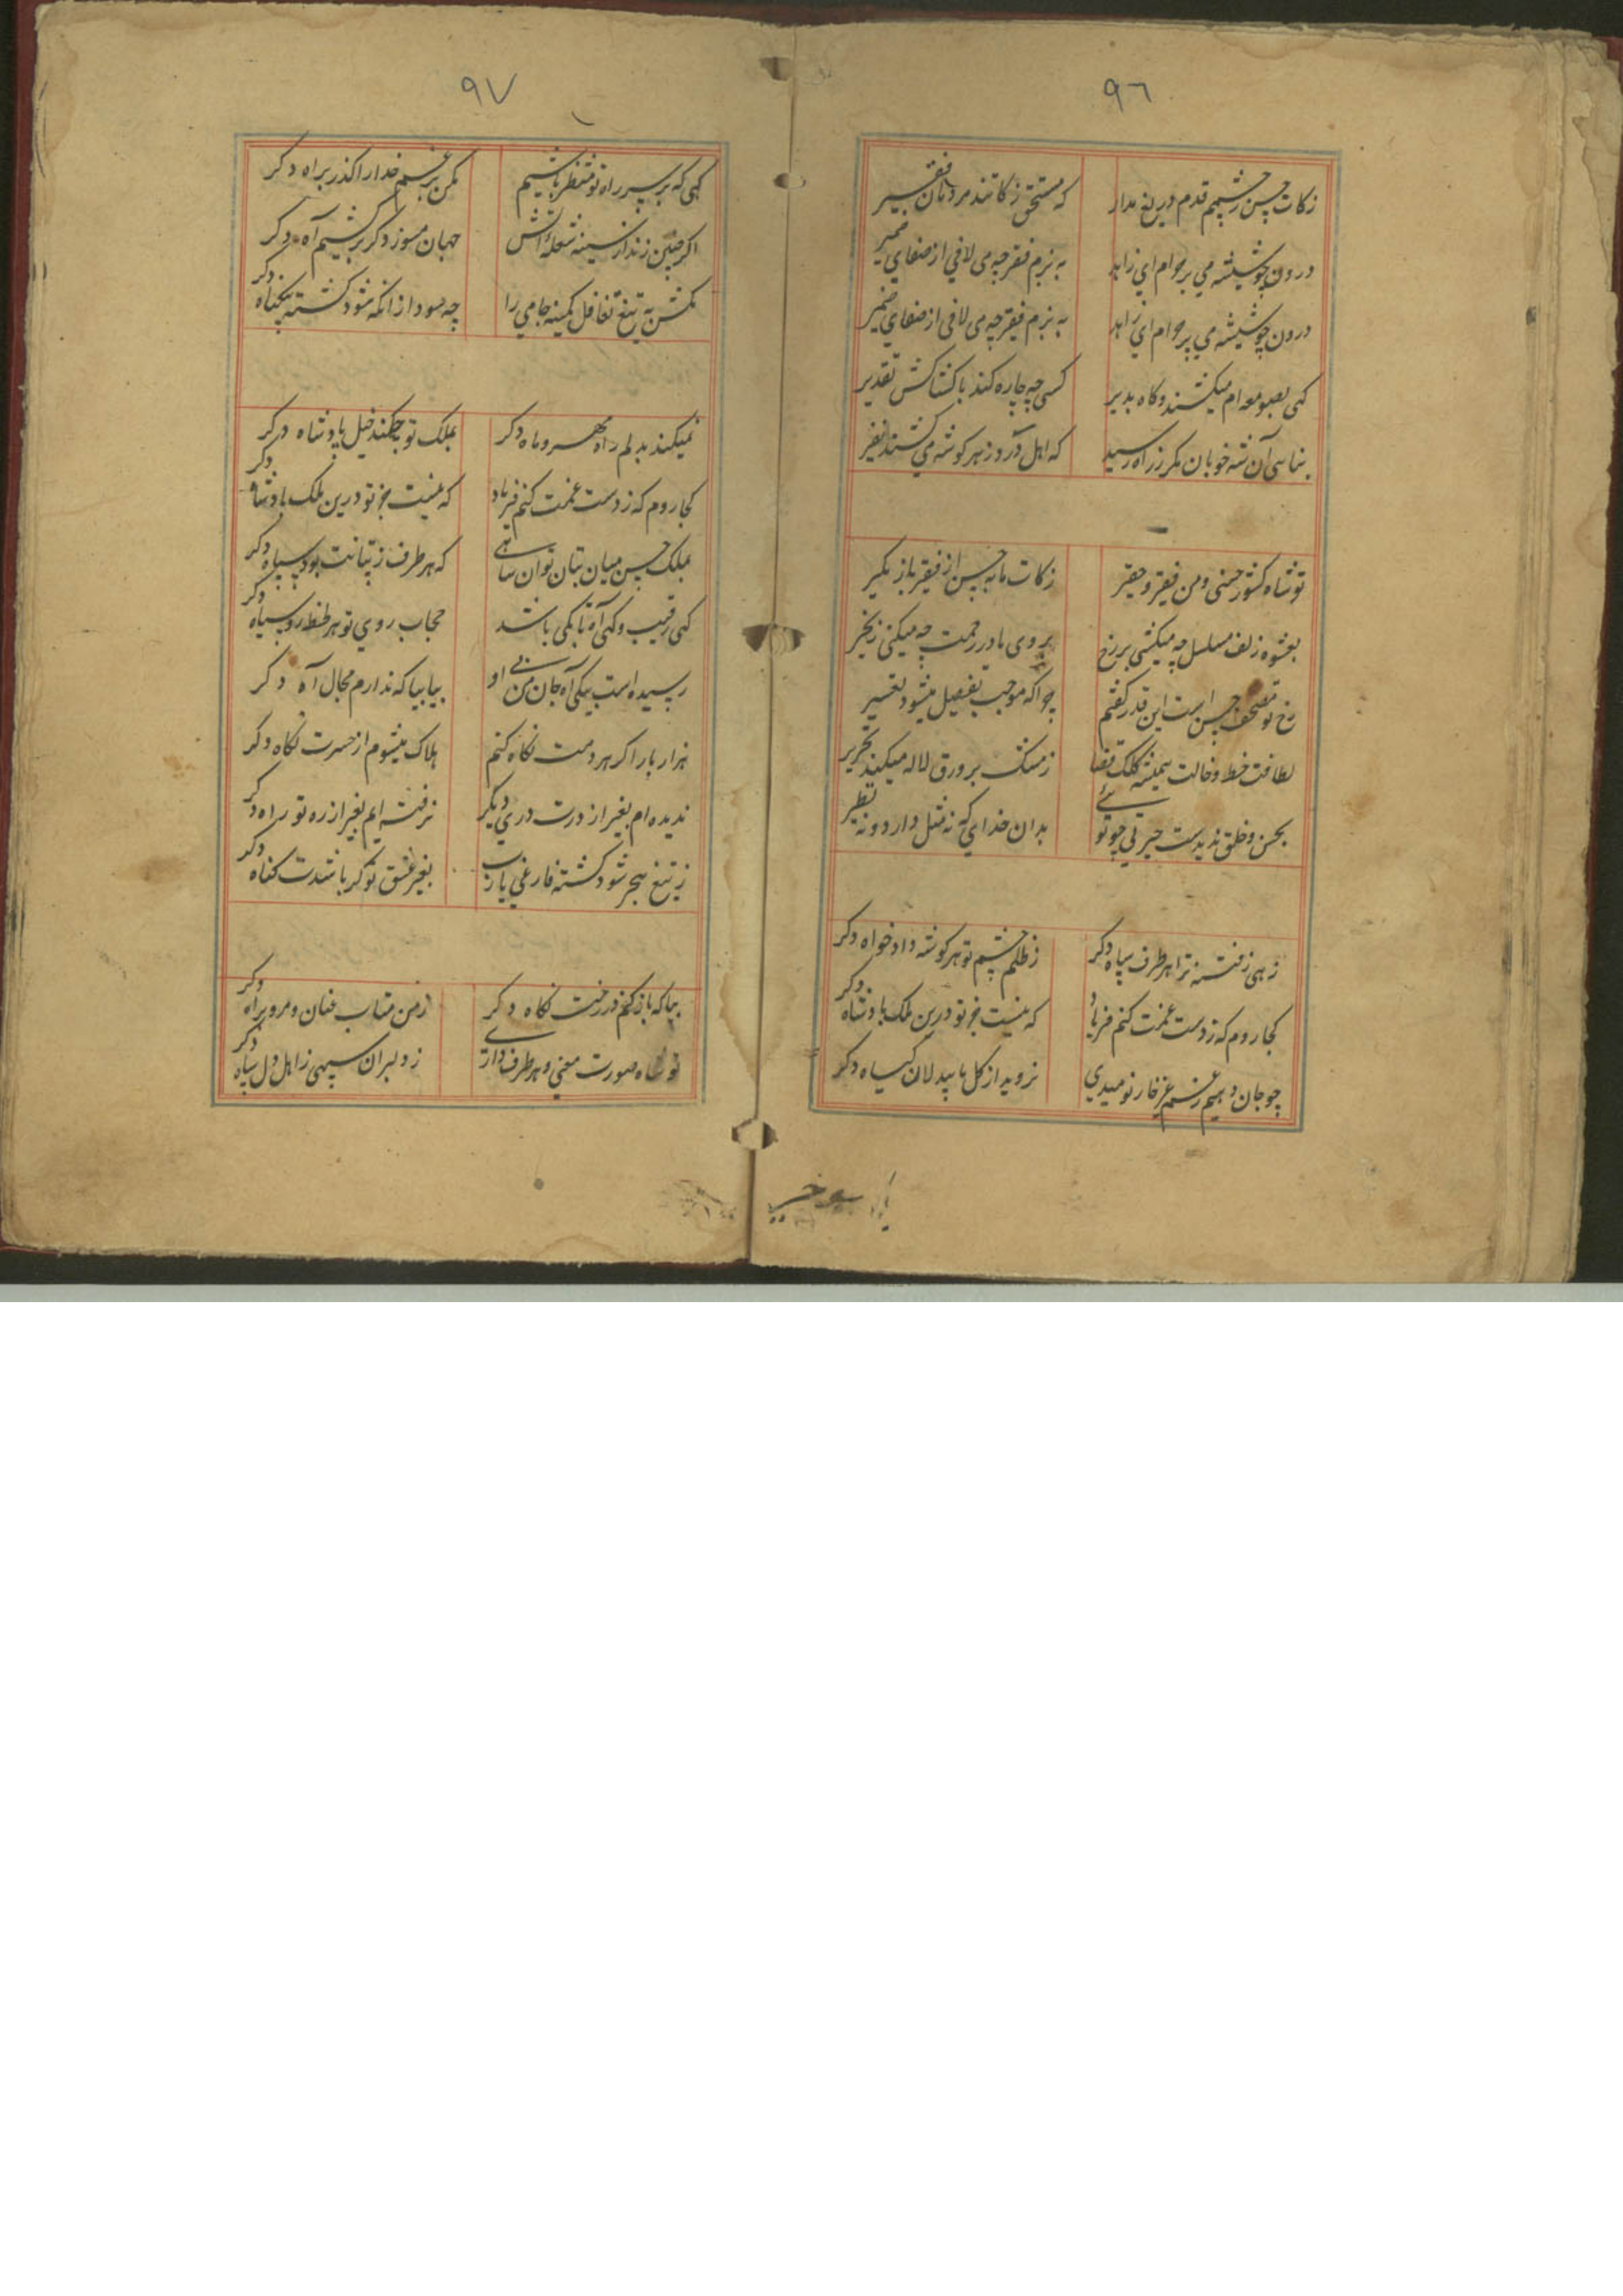 ٩٦
زکات حسن ز چشمم قدم دریغ مدار که مستحق زکاتند مردمان فقیر
درون چو شیشه می پر حرام ای زاهد به بزم فقر چه می لافی از صفای ضمیر
درون چو شیشه می پر حرام ای زاهد به بزم فقر چه می لافی از صفای ضمیر
کهی بصومعه ام میکشند و کاه بدیر کسی چه چاره کند با کشاکش تقدیر
بناسی آن شه خوبان مکر ز راه رسید که اهل درد ز هر کوشه می کشند نفیر
تو شاه کشور حسنی و من فقیر و حقیر زکات مایه حسن از فقیر باز مکیر
بعشوه زلف مسلسل چه میکشی بر رخ بروی ما در رحمت چه میکنی زنجیر
رخ تو مصحف حسن است این قدر کفتم چرا که موجب تفصیل میشود تفسیر
لطافت خط و خالت همیشه کلک قضا ز مشک بر ورق لاله میکند تحریر
بحسن و خلق ندیدست چو تو بدان خدایی که نه مثل دارد و نه نظیر
زهی ز فتنه ترا هر طرف سپاه دکر ز ظلم چشم تو هر کوشه دادخواه دکر
کجا روم که ز دست غمت کنم فریاد که نیست جز تو درین ملک پادشاه دکر
چو جان دهیم ز غم غیر خار نومیدی نروید از کل ما بیدلان کیاه دکر
٩٧
کهی که بر سر راه تو منتظر باشیم مکن برغم خدا را کذر براه دکر
اکر چنین زند از سینه شعله آتش جهان مسوز دکر برکشیم آه دکر
مکش به تیغ تغافل کمینه جامی را چه سود از انکه شود کشته بیکناه دکر
نمیکند بدلم راه مهر و ماه دکر بملک تو چکند خیل پادشاه دکر
کجا روم که ز دست غمت کنم فریاد که نیست جز تو درین ملک پادشاه دکر
بملک حسن میان بتان توان شاهی که هر طرف ز بتانت بود سپاه دکر
کهی رقیب و کهی آه تا بکی باشد حجاب روی تو هر لحظه رو سیاه دکر
رسیده است بیکی آه جان من بی او بیا بیا که ندارم مجال آه دکر
هزار بار اکر هر دمت نکاه کنم هلاک میشوم از حسرت نکاه دکر
ندیده ام بغیر از درت دری دیکر نرفته ایم بغیر از ره تو راه دکر
ز تیغ هجر شود کشته فارغی یا رب بغیر عشق تو کر باشدت کناه دکر
بیا که باز کنم در رخت نکاه دکر ز من متاب عنان و مرو براه دکر
تو شاه صورت معنی و هر طرف داری ز دلبران سپهی ز اهل دل سپاه دکر